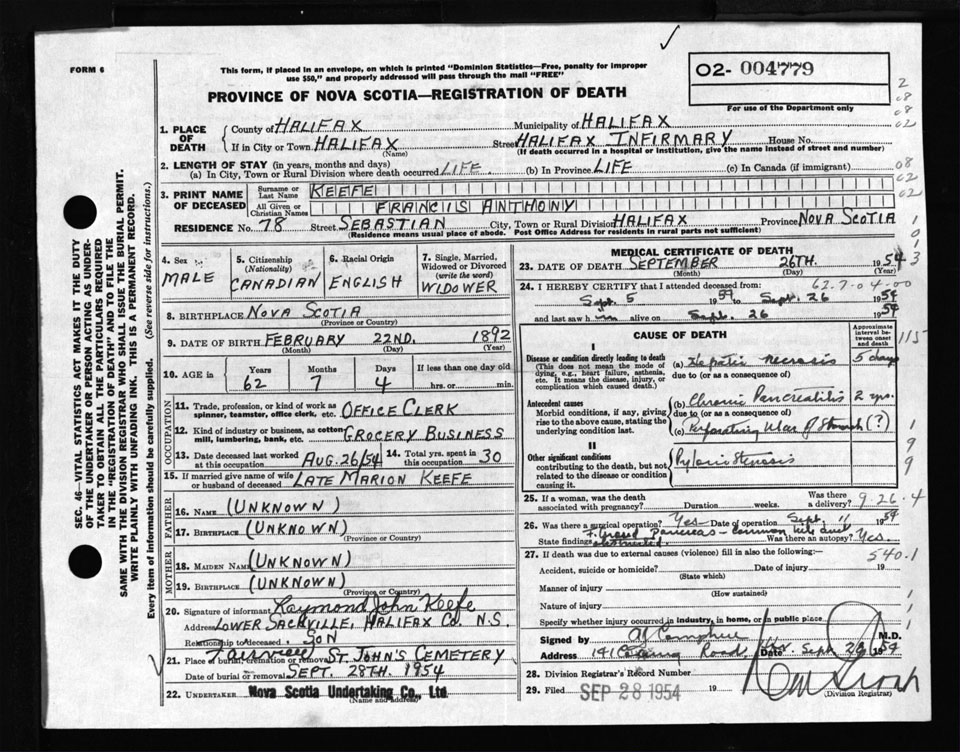 FORM 6
This form, if placed in an envelope, on which is printed "Dominion Statistics—Free, penalty for improper
use $50," and properly addressed will pass through the mail "FREE"
PROVINCE OF NOVA SCOTIA—REGISTRATION OF DEATH
02- 004779
For use of the Department only
2
08
08
02
08
02
1
0
1 3
SEC. 46—VITAL STATISTICS ACT MAKES IT THE DUTY
OF THE UNDERTAKER OR PERSON ACTING AS UNDER-
TAKER TO OBTAIN ALL THE PARTICULARS REQUIRED
IN THE "REGISTRATION OF DEATH" AND TO FILE THE
SAME WITH THE DIVISION REGISTRAR WHO SHALL ISSUE THE BURIAL PERMIT.
WRITE PLAINLY WITH UNFADING INK. THIS IS A PERMANENT RECORD.
Every item of information should be carefully supplied. (See reverse side for instructions.)
1. PLACE OF DEATH
County of HALIFAX Municipality of HALIFAX
If in City or Town HALIFAX Street HALIFAX INFIRMARY House No.
(Name) (If death occurred in a hospital or institution, give the name instead of street and number)
2. LENGTH OF STAY (in years, months and days)
(a) In City, Town or Rural Division where death occurred LIFE. (b) In Province LIFE (c) In Canada (if immigrant)
3. PRINT NAME OF DECEASED
Surname or Last Name KEEFE
All Given or Christian Names FRANCIS ANTHONY
RESIDENCE No. 78 Street SEBASTIAN City, Town or Rural Division HALIFAX Province NOVA SCOTIA
(Residence means usual place of abode. Post Office Address for residents in rural parts not sufficient)
4. Sex MALE
5. Citizenship (Nationality) CANADIAN
6. Racial Origin ENGLISH
7. Single, Married, Widowed or Divorced (write the word) WIDOWER
8. BIRTHPLACE NOVA SCOTIA
(Province or Country)
9. DATE OF BIRTH FEBRUARY 22ND. 1892
(Month) (Day) (Year)
10. AGE Years Months Days If less than one day old
62 7 4 hrs. or min.
OCCUPATION
11. Trade, profession, or kind of work as spinner, teamster, office clerk, etc. OFFICE CLERK
12. Kind of industry or business, as cotton mill, lumbering, bank, etc. GROCERY BUSINESS
13. Date deceased last worked at this occupation AUG. 26/54 14. Total yrs. spent in this occupation 30
15. If married give name of wife or husband of deceased LATE MARION KEEFE
FATHER
16. NAME (UNKNOWN)
17. BIRTHPLACE (UNKNOWN)
(Province or Country)
MOTHER
18. MAIDEN NAME (UNKNOWN)
19. BIRTHPLACE (UNKNOWN)
(Province or Country)
20. Signature of informant Raymond John Keefe
Address LOWER SACKVILLE, HALIFAX Co. N.S.
Relationship to deceased SON
21. Place of burial, cremation or removal ST. JOHN'S CEMETERY
Date of burial or removal SEPT. 28TH. 1954
22. UNDERTAKER Nova Scotia Undertaking Co., Ltd.
(Name and address)
MEDICAL CERTIFICATE OF DEATH
23. DATE OF DEATH SEPTEMBER 26TH. 1954
(Month) (Day) (Year)
24. I HEREBY CERTIFY that I attended deceased from: 62.7-04-00
Sept. 5 1954 to Sept. 26 1954
and last saw him alive on Sept. 26 1954
CAUSE OF DEATH
Approximate interval between onset and death
115
I
Disease or condition directly leading to death
(This does not mean the mode of dying, e.g., heart failure, asthenia, etc. It means the disease, injury, or complication which caused death.)
(a) Hepatic necrosis 5 days
due to (or as a consequence of)
Antecedent causes
Morbid conditions, if any, giving rise to the above cause, stating the underlying condition last.
(b) Chronic Pancreatitis 2 yrs.
due to (or as a consequence of)
(c) Perforating Ulcer of Stomach (?)
II
Other significant conditions
contributing to the death, but not related to the disease or condition causing it
Pyloric Stenosis
1
9
9
25. If a woman, was the death associated with pregnancy? Duration weeks. Was there a delivery? 9.26.4
26. Was there a surgical operation? Yes Date of operation Sept. 11 1954
State findings Pancreas - Common bile duct obstructed. Was there an autopsy? Yes.
27. If death was due to external causes (violence) fill in also the following:— 540.1
Accident, suicide or homicide? Date of injury 19
(State which)
Manner of injury
(How sustained)
Nature of injury
Specify whether injury occurred in industry, in home, or in public place
1
1
Signed by M.D.
Address 141 Road, Hfx. Date Sept. 26 1954
28. Division Registrar's Record Number
29. Filed SEP 28 1954 19
(Division Registrar)